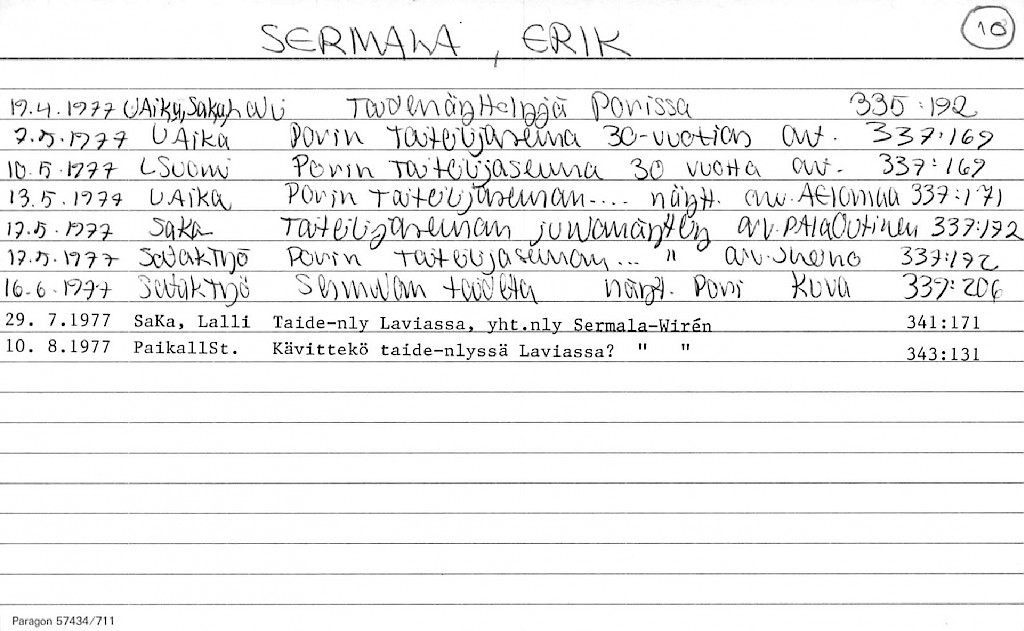 SERMALA, ERIK
10
19.4.1977 UAika, SaKa, Lalli Taidenäyttelyjä Porissa 335:192
7.5.1977 UAika Porin Taiteilijaseura 30-vuotias art. 337:169
10.5.1977 LSuomi Porin Taiteilijaseura 30 vuotta art. 337:169
13.5.1977 UAika Porin Taiteilijaseuran.... näytt. arv. 337:171
17.5.1977 SaKa Taiteilijaseuran juhlanäyttely arv. 337:172
17.5.1977 SatakTyö Porin Taiteilijaseuran... " arv. 337:172
16.6.1977 SatakTyö Sermalan taidetta näytt. Pori Kuva 339:206
29. 7.1977 SaKa, Lalli Taide-nly Laviassa, yht.nly Sermala-Wirén 341:171
10. 8.1977 PaikallSt. Kävittekö taide-nlyssä Laviassa? " " 343:131
Paragon 57434/711